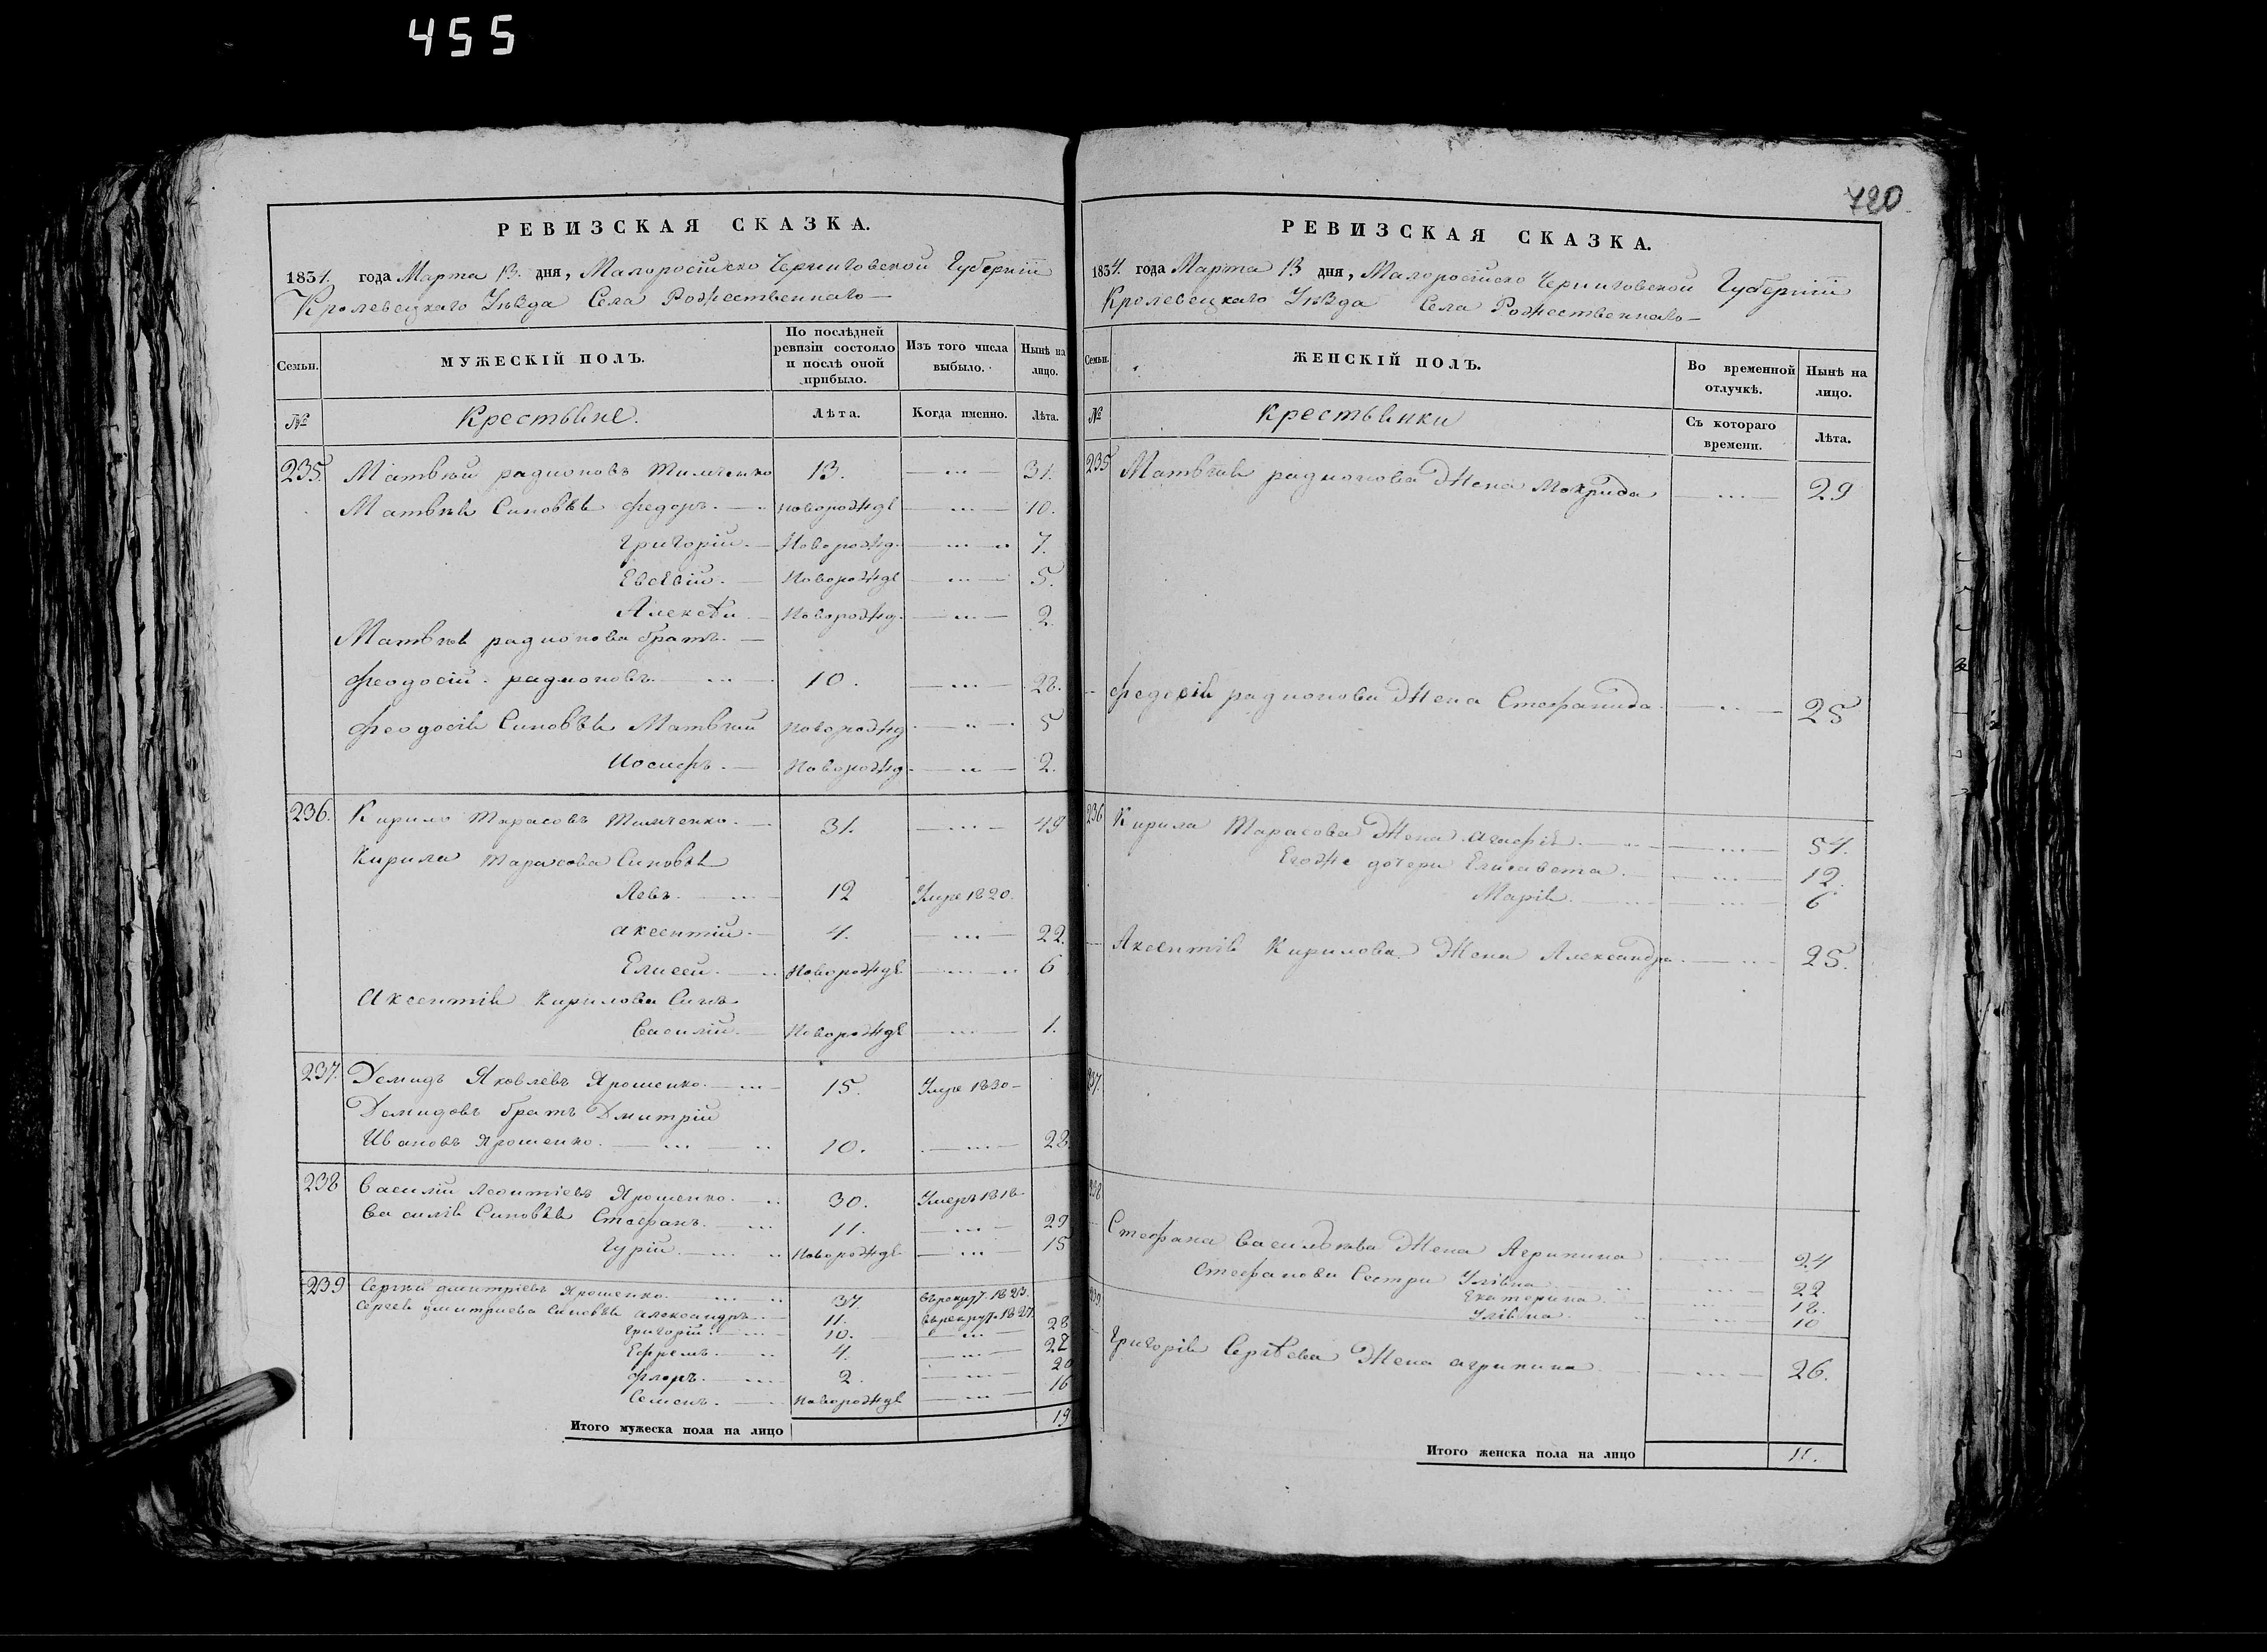 455
720
РЕВИЗСКАЯ СКАЗКА.
1834. года Марта 13. дня, Малоросійско Черниговской Губерніи
Кролевецкаго Уѣзда Села Рожественнаго
Семьи.
МУЖЕСКІЙ ПОЛЪ.
По послѣдней ревизіи состояло и послѣ оной прибыло.
Изъ того числа выбыло.
Нынѣ на лицо.
№ Крестьяне. Лѣта. Когда именно. Лѣта.
235. Матвѣй радионовъ Тимченко 13. 31.
Матвѣя Синовья Федоръ. новорожде 10.
Григорій. Новорожд. 7.
Евсевій. Новорожде 5.
Алексѣй Новорожд. 2.
Матвѣя радионова братъ.
Феодосій радионовъ 10. 28.
Феодосія Синовья Матвѣй Новорожд 5
Иосифъ. Новорожд. 2.
236. Кирило Тарасовъ Тимченко. 31. 49
Кирила Тарасова Синовья
Левъ. 12 Умре 1820.
Аксентій. 4. 22.
Елисей. Новорожде 6
Аксентія Кирилова Синъ
Василій. Новорожде 1.
237. Демидъ Яковлевъ Ярошенко. 15. Умре 1830
Демидовъ братъ Дмитрій
Ивановъ Ярошенко. 10. 28
238 Василій Леонтіевъ Ярошенко. 30. Умеръ 1818
Василія Синовья Стефанъ. 11. 29
Гурій. Новорожде 15
239 Сергѣй Дмитріевъ Ярошенко. 37. Върекрут. 1823.
Сергея Дмитриева Синовья Александръ. 11. Върекрут. 1827
Григорій. 10. 28
Ефремъ. 4. 22
Флоръ. 2. 20
Семенъ. Новорожде 16
Итого мужеска пола на лицо 19
РЕВИЗСКАЯ СКАЗКА.
1834. года Марта 13 дня, Малоросійско Черниговской Губерніи
Кролевецкаго Уѣзда Села Рожественнаго
Семьи.
ЖЕНСКІЙ ПОЛЪ.
Во временной отлучкѣ.
Нынѣ на лицо.
№ Крестьянки Съ котораго времени. Лѣта.
235 Матвѣя радионова Жена Мокрида 29
Федосія радионова Жена Стефанида 25
236 Кирила Тарасова Жена Агафія 54.
Егоже дочери Елисавета 12.
Марія. 6
Аксентія Кирилова Жена Александра 25.
237.
238
Стефана Василіева Жена Агрипина 24
Стефанови Сестри Уліяна 22
Екатерина 18.
Уліяна 10
239
Григорія Сергѣева Жена агрипина 26.
Итого женска пола на лицо 11.